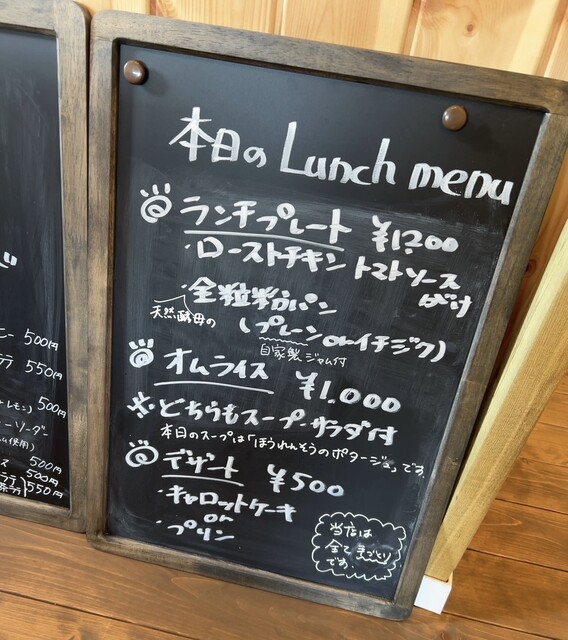 本日の Lunch menu
ランチプレート ¥1,200
・ローストチキン トマトソース
がけ
・全粒粉パン
天然酵母の
(プレーン or イチジク)
自家製ジャム付
オムライス ¥1,000
※どちらもスープ・サラダ付
本日のスープは「ほうれんそうのポタージュ」です。
デザート ¥500
・キャロットケーキ
or
・プリン
当店は
全て
です。
500円
550円
レモン) 500円
ーソーダ
使用)
500円
500円
550円